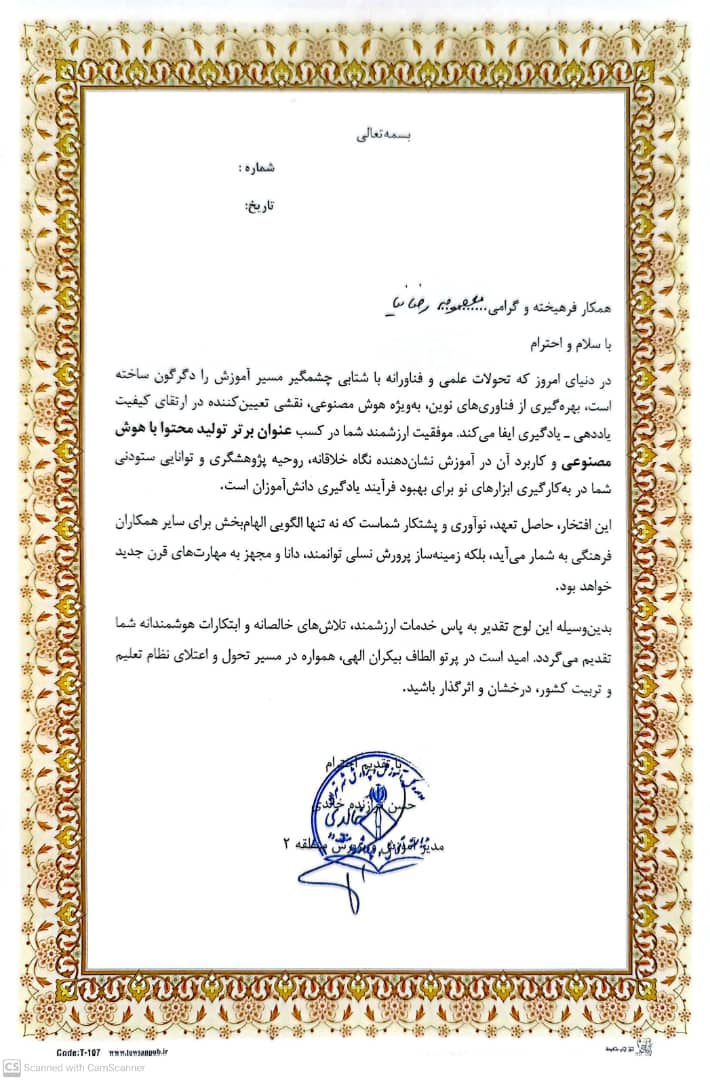 بسمه‌تعالی
شماره :
تاریخ:
همکار فرهیخته و گرامی......معصومه رضانیا
با سلام و احترام
در دنیای امروز که تحولات علمی و فناورانه با شتابی چشمگیر مسیر آموزش را دگرگون ساخته
است، بهره‌گیری از فناوری‌های نوین، به‌ویژه هوش مصنوعی، نقشی تعیین‌کننده در ارتقای کیفیت
یاددهی ـ یادگیری ایفا می‌کند. موفقیت ارزشمند شما در کسب عنوان برتر تولید محتوا با هوش
مصنوعی و کاربرد آن در آموزش نشان‌دهنده نگاه خلاقانه، روحیه پژوهشگری و توانایی ستودنی
شما در به‌کارگیری ابزارهای نو برای بهبود فرآیند یادگیری دانش‌آموزان است.
این افتخار، حاصل تعهد، نوآوری و پشتکار شماست که نه تنها الگویی الهام‌بخش برای سایر همکاران
فرهنگی به شمار می‌آید، بلکه زمینه‌ساز پرورش نسلی توانمند، دانا و مجهز به مهارت‌های قرن جدید
خواهد بود.
بدین‌وسیله این لوح تقدیر به پاس خدمات ارزشمند، تلاش‌های خالصانه و ابتکارات هوشمندانه شما
تقدیم می‌گردد. امید است در پرتو الطاف بیکران الهی، همواره در مسیر تحول و اعتلای نظام تعلیم
و تربیت کشور، درخشان و اثرگذار باشید.
با تقدیم احترام
حسن فرازنده خالدی
مدیر آموزش و پرورش منطقه ۲
Code:T-107 www.towsanpub.ir
CS Scanned with CamScanner